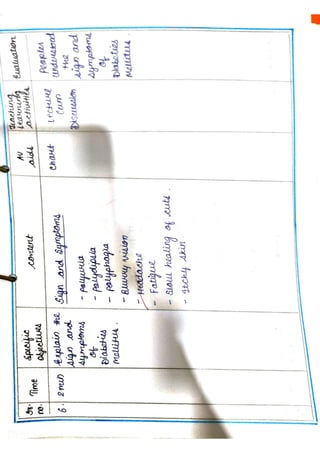 Sr. no.
Time
Specific
objectives
content
AV
aids
Teaching
learning
activities
Evaluation
6.
2min
Explain the
sign and
symptoms
of
Diabeties
mellitus.
Sign and Symptoms
- Polyuria
- Polydipsia
- Polyphagia
- Blurry vision
- Headache
- Fatigue
- Slow healing of cuts.
- Itchy skin
chart
Lecture
cum
Discussion
Peoples
understood
the
sign and
symptoms
of
Diabeties
mellitus.